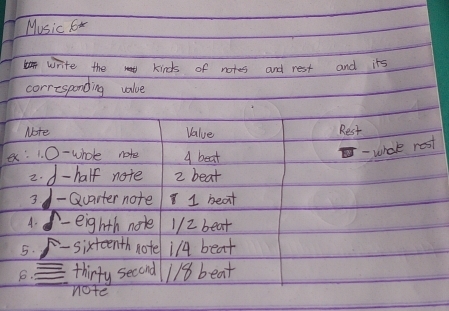 Music
write the kinds of notes and rest and its
corresponding value
Note Value Rest
ex: 1. - whole note 4 beat - whole rest
2. - half note 2 beat
3 - Quarter note 1 beat
4. - eighth note 1/2 beat
5. - sixteenth note 1/4 beat
6. thirty second 1/8 beat
note